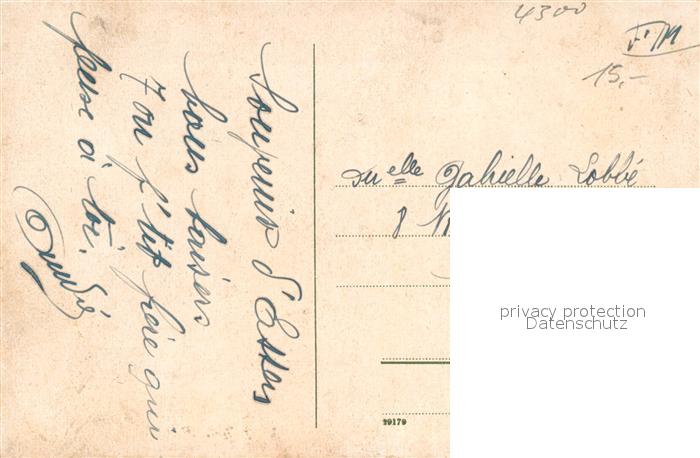 4300
F/M
15,-
Souvenir d'Essen
bons baisers
Ton p'tit frère qui
pense à toi.
André
Melle Gabrielle Lobbé
8
29179
privacy protection
Datenschutz